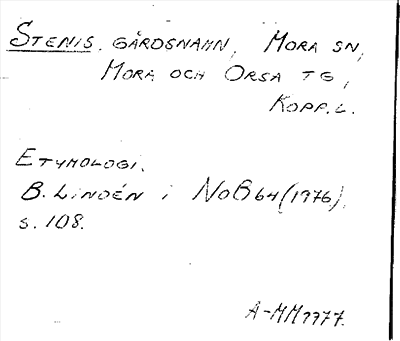 STENIS. GÅRDSNAMN, MORA SN,
MORA OCH ORSA TG,
KOPP. L.
ETYMOLOGI.
B. LINDÉN i NoB 64 (1976),
s. 108.
A-MM 1977.